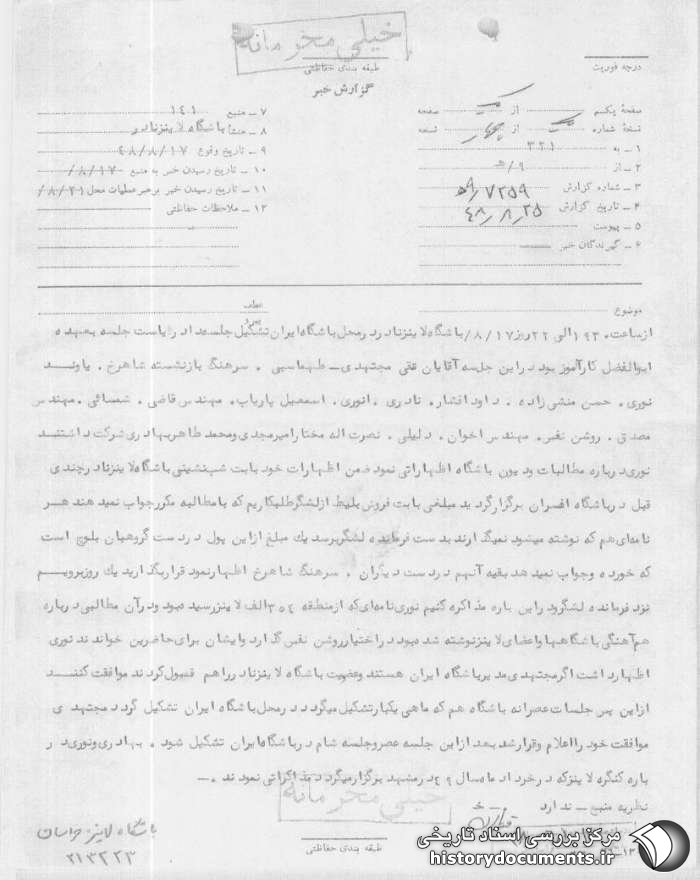 خیلی محرمانه
طبقه بندی حفاظتی
گزارش خبر
درجه فوریت
صفحهٔ یکم از یک صفحه
نسخهٔ شماره یک از چهار نسخه
۱ - به ۳۲۱
۲ - از ۹/ﻫ
۳ - شماره گزارش ۷۲۵۹/۹ﻫ
۴ - تاریخ گزارش ۴۸/۸/۲۵
۵ - پیوست
۶ - گیرندگان خبر
۷ - منبع ۱۴۱
۸ - منشأ باشگاه لاینز نادر
۹ - تاریخ وقوع ۴۸/۸/۱۷
۱۰ - تاریخ رسیدن خبر به منبع ۸/۱۷/
۱۱ - تاریخ رسیدن خبر به رهبر عملیات محل ۸/۲۱/
۱۲ - ملاحظات حفاظتی
موضوع
عطف
پیرو
از ساعت ۱۹۳۰ الی ۲۲ روز ۸/۱۷/ باشگاه لاینز نادر در محل باشگاه ایران تشکیل جلسه داد ریاست جلسه بعهده
ابوالفضل کارآموز بود در این جلسه آقایان تقی مجتهدی - طهماسبی . سرهنگ بازنشسته شاهرخ . یاوند
نوری . حسن منشی زاده . داود افشار . نادری . انوری . اسمعیل پاریاب . مهندس قاضی . شمسائی . مهندس
مصدق . روشن نفس . مهندس اخوان . دلیلی . نصرت اله مختار امیرمجدی ومحمد طاهر بهادری شرکت داشتند
نوری درباره مطالبات و دیون باشگاه اظهاراتی نمود ضمن اظهارات خود بابت شب نشینی باشگاه لاینز نادر چندی
قبل در باشگاه افسران برگزار گردید مبلغی بابت فروش بلیط از لشگر طلبکاریم که با مطالبه مکرر جواب نمیدهند هر
نامه‌ای هم که نوشته میشود نمیگذارند بدست فرمانده لشگر برسد یک مبلغ از این پول در دست گروهبان بلوچ است
که خورده وجواب نمیدهد بقیه آنهم در دست دیگران . سرهنگ شاهرخ اظهار نمود قرار بگذارید یک روز برویم
نزد فرمانده لشگر و در این باره مذاکره کنیم نوری نامه‌ای که از منطقه ۳۵۴ الف لاینز رسیده بود و در آن مطالبی درباره
هم‌آهنگی باشگاهها واعضای لاینز نوشته شده بود در اختیار روشن نفس گذارد وایشان برای حاضرین خواندند نوری
اظهار داشت اگر مجتهدی مدیر باشگاه ایران هستند وعضویت باشگاه لاینز نادر را هم قبول کردند موافقت کنند
از این پس جلسات عصرانه باشگاه هم که ماهی یکبار تشکیل میگردد در محل باشگاه ایران تشکیل گردد مجتهدی
موافقت خود را اعلام وقرار شد بعد از این جلسه عصر وجلسه شام در باشگاه ایران تشکیل شود . بهادری ونوری در
باره کنگره لاینز که در خرداد ماه سال ۴۹ در مشهد برگزار میگردد مذاکراتی نمودند . -
نظریه منبع - ندارد
خیلی محرمانه
طبقه بندی حفاظتی
باشگاه لاینز خراسان
۲۱۳۲۲۳
مرکز بررسی اسناد تاریخی
historydocuments.ir